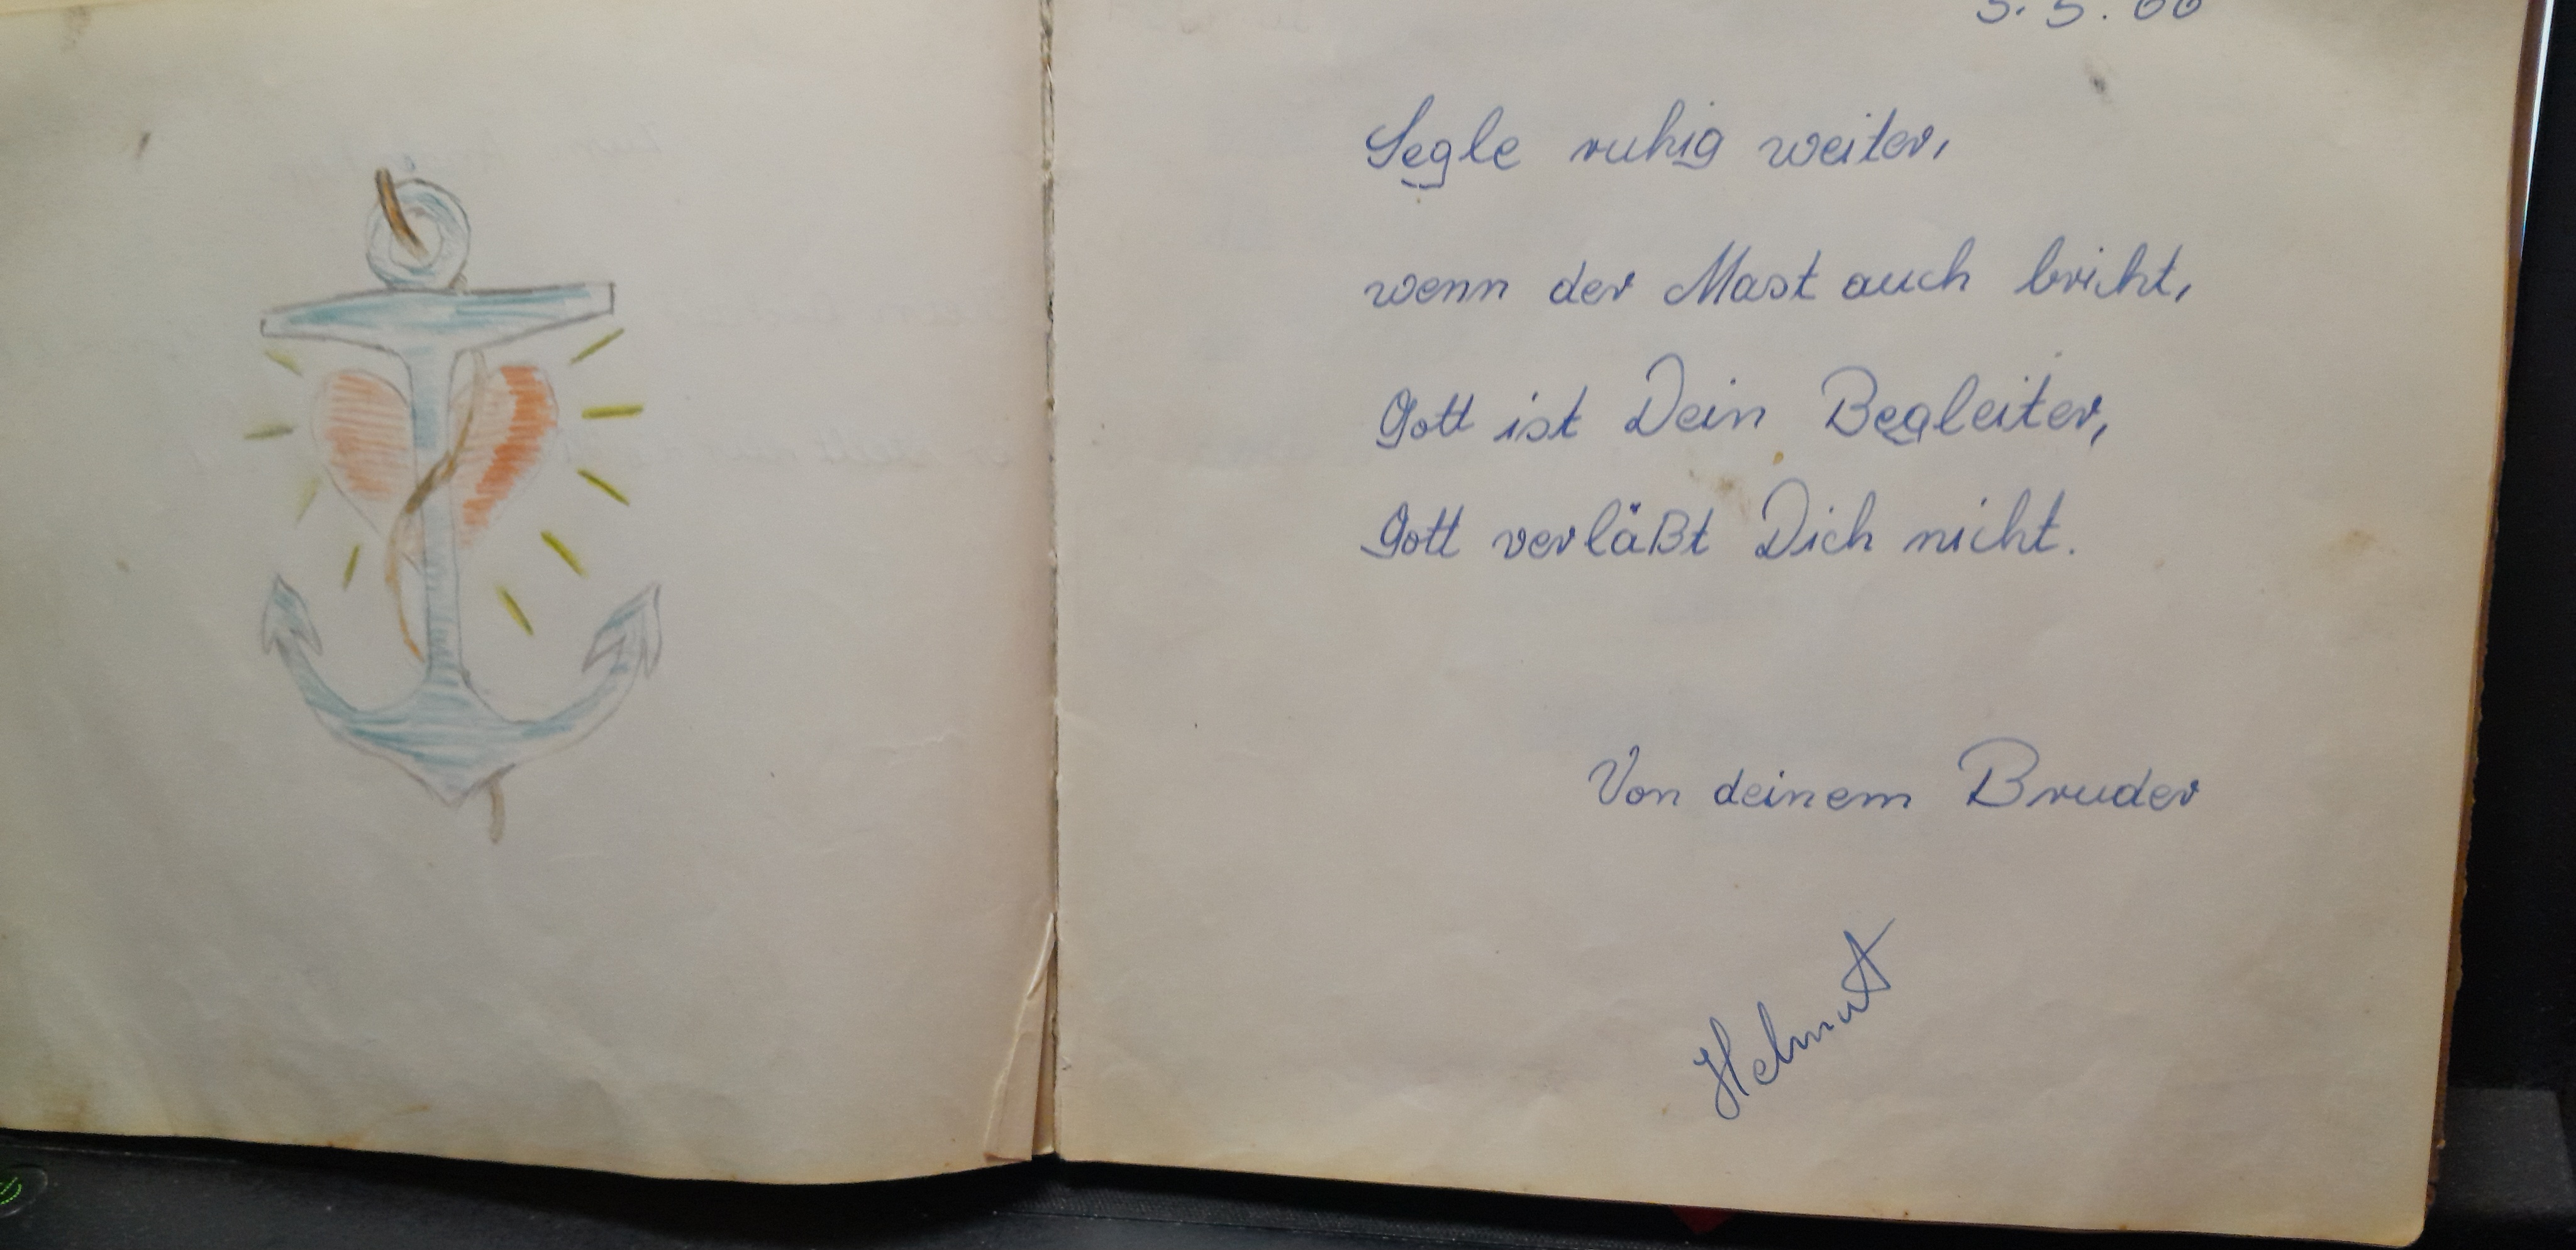 5. 5. 66
Segle ruhig weiter,
wenn der Mast auch bricht,
Gott ist Dein Begleiter,
Gott verläßt Dich nicht.
Von deinem Bruder
Helmut